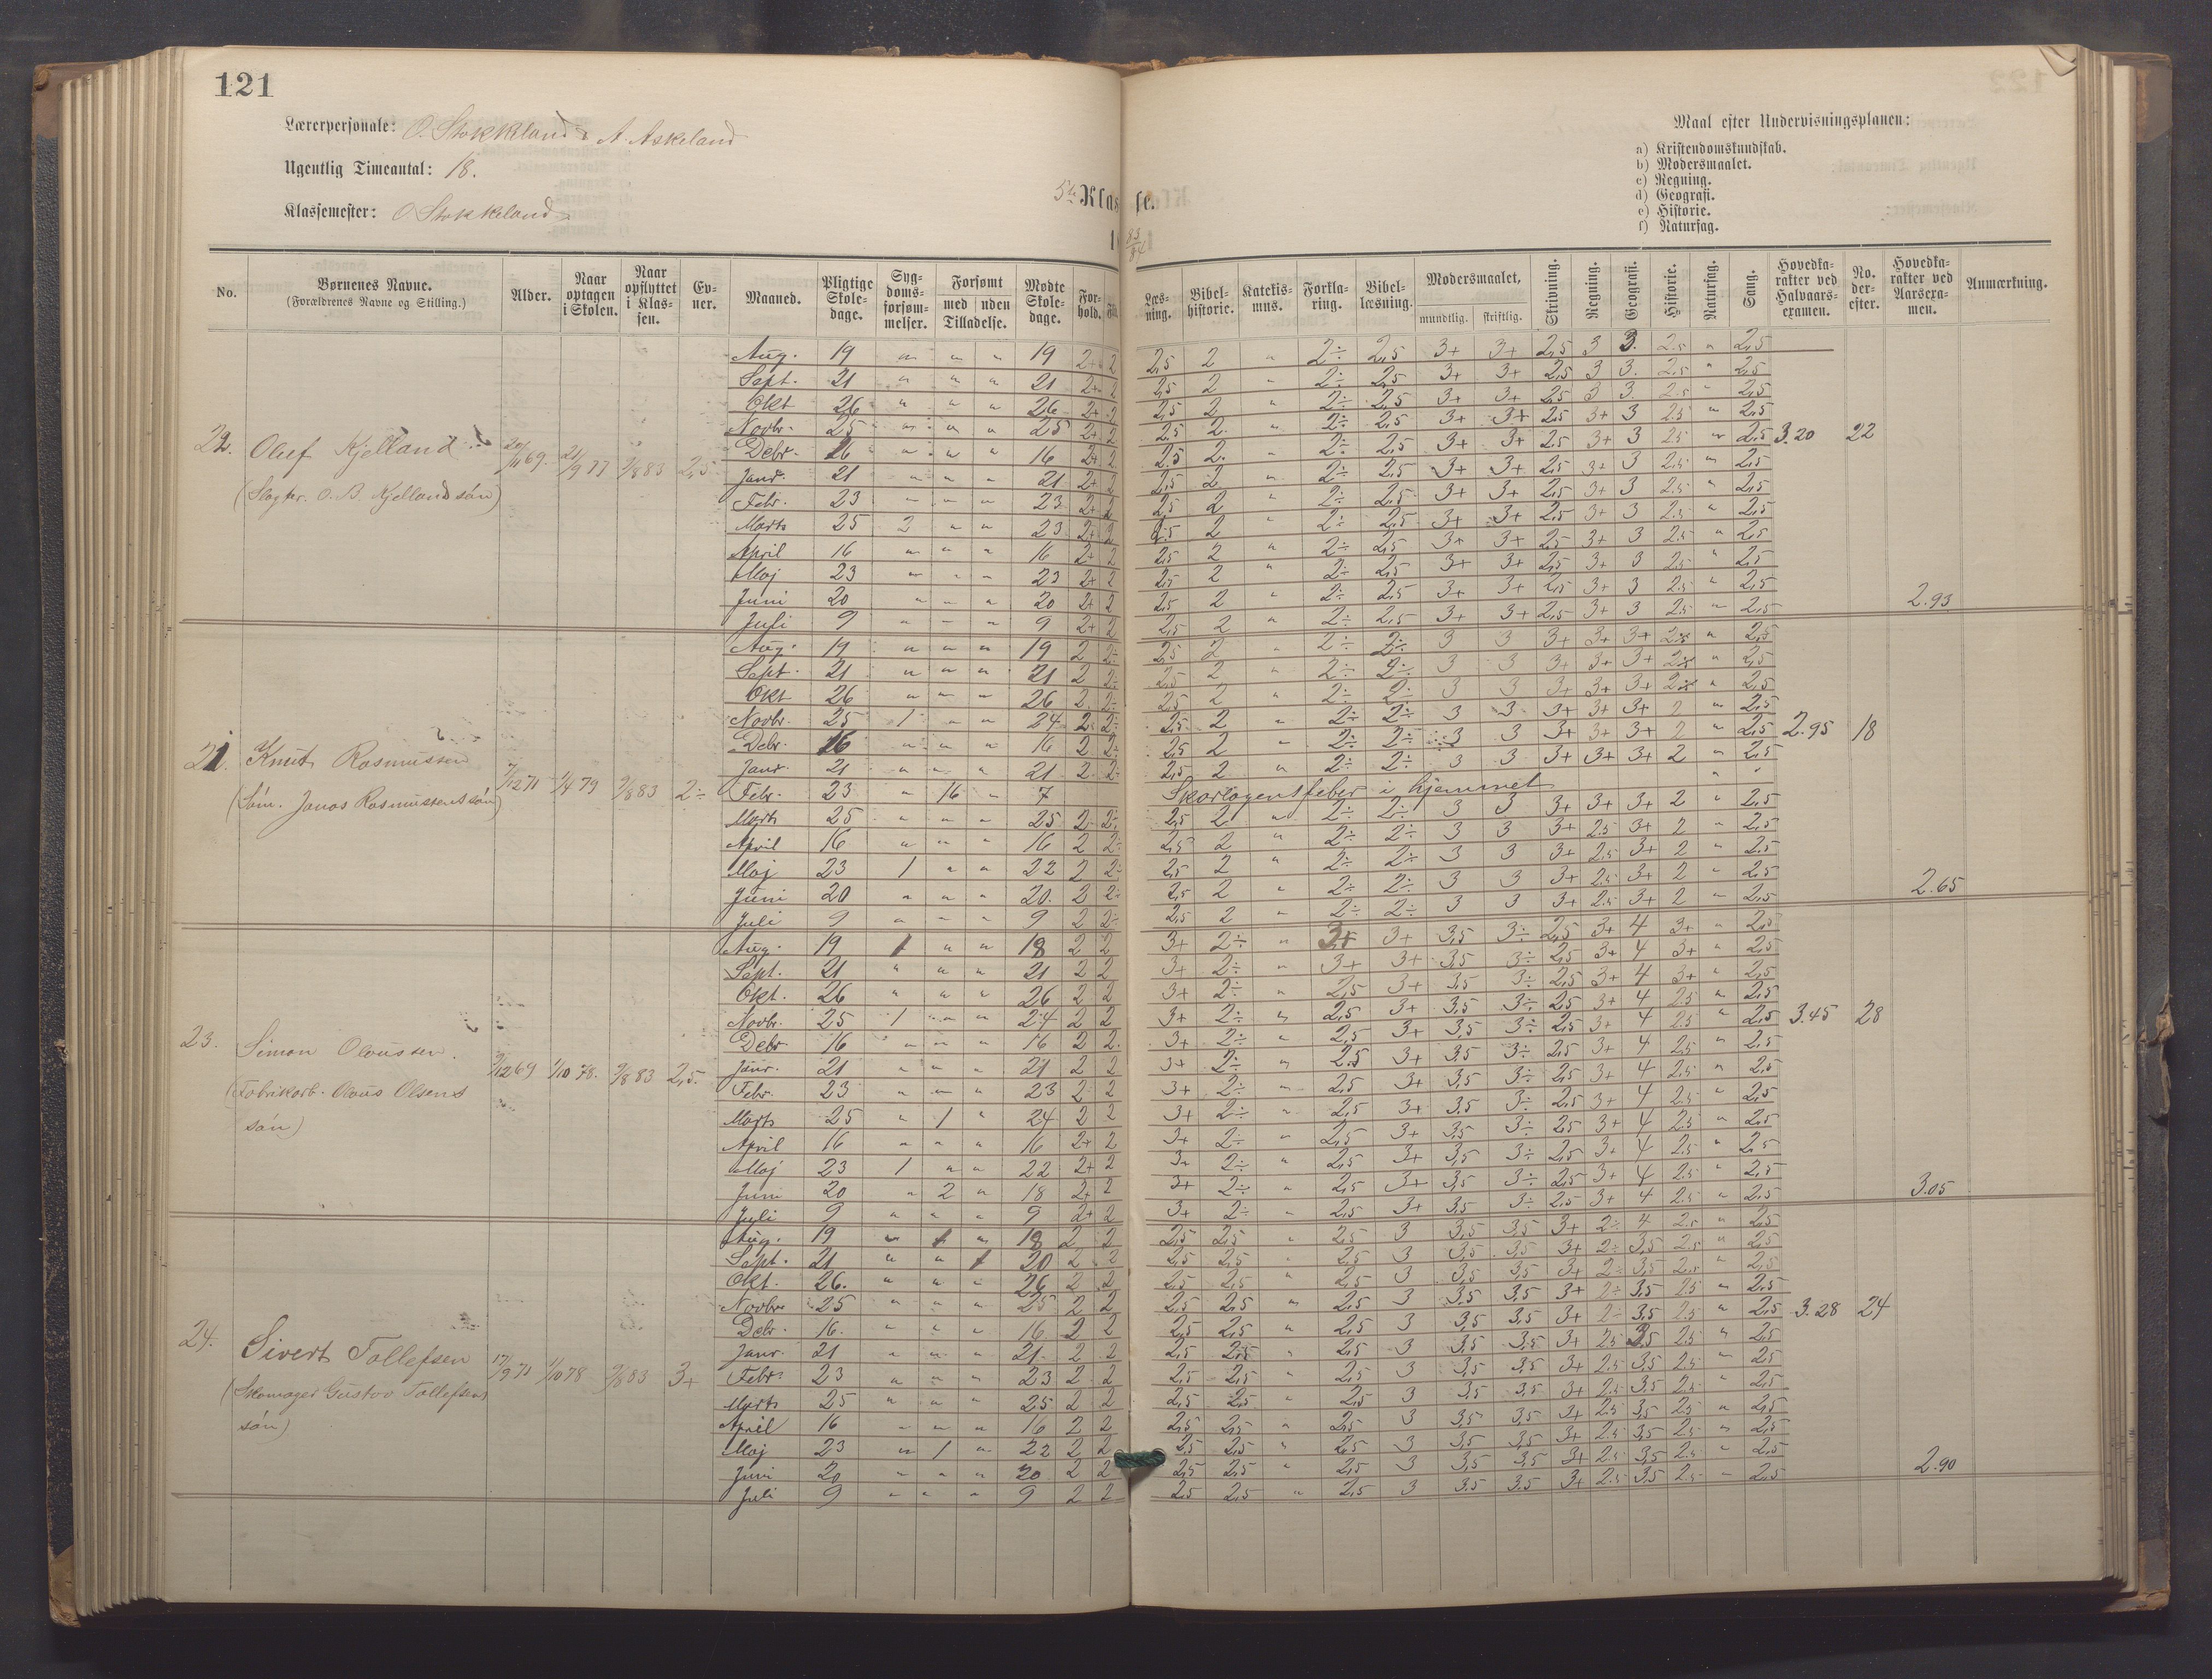 121
Lærerpersonale: O. Stokkeland & A. Askeland
Ugentlig Timeantal: 18.
Klassemester: O. Stokkeland
5te Klasse.
18 83/84
Maal efter Undervisningsplanen:
a) Kristendomskundskab.
b) Modersmaalet.
c) Regning.
d) Geografi.
e) Historie.
f) Naturfag.
No. Børnenes Navne. (Forældrenes Navne og Stilling.) Alder. Naar optagen i Skolen. Naar opflyttet i Klassen. Evner. Maaned. Pligtige Skoledage. Sygdomsforsømmelser. Forsømt med uden Tilladelse. Mødte Skoledage. Forhold. Læsning. Bibelhistorie. Katekismus. Forklaring. Bibellæsning. Modersmaalet, mundtlig. skriftlig. Skrivning. Regning. Geografi. Historie. Naturfag. Sang. Hovedkarakter ved Halvaarsexamen. No. derefter. Hovedkarakter ved Aarsexamen. Anmærkning.
Aug. 19 " " " 19 2+ 2 2,5 2 " 2÷ 2,5 3+ 3+ 2,5 3 3. 2.5 " 2,5
Sept. 21 " " " 21 2+ 2 2,5 2 " 2÷ 2,5 3+ 3+ 2,5 3 3. 2,5 " 2,5
Okt 26 " " " 26 2+ 2 2,5 2 " 2÷ 2,5 3+ 3+ 2,5 3 3. 2.5 " 2,5
Novbr. 25 " " " 25 2+ 2 2,5 2. " 2÷ 2,5 3+ 3+ 2,5 3+ 3 2.5 " 2,5
22. Oluf Kjelland 9/8 83 2,5 Debr. 16 " " " 16 2+ 2 2.5 2. " 2÷ 2,5 3+ 3+ 2,5 3+ 3 2.5 " 2,5 3.20 22
(Slagter. O. B. Kjellands søn) Janr. 21 " " " 21 2+ 2 2,5 2 " 2÷ 2,5 3+ 3+ 2,5 3+ 3 2.5 " 2,5
Febr. 23 " " " 23 2+ 2 2,5 2 " 2÷ 2,5 3+ 3+ 2,5 3+ 3 2.5 " 2,5
Marts 25 2 " " 23 2+ 2 2.5 2 " 2÷ 2,5 3+ 3+ 2,5 3+ 3 2.5 " 2,5
April 16 " " " 16 2+ 2 2,5 2 " 2÷ 2,5 3+ 3+ 2,5 3+ 3 2.5 " 2,5
Maj 23 " " " 23 2+ 2 2,5 2 " 2÷ 2,5 3+ 3+ 2,5 3+ 3 2.5 " 2,5
Juni 20 " " " 20 2+ 2 2,5 2 " 2÷ 2,5 3+ 3+ 2,5 3+ 3 2.5 " 2,5 2.93
Juli 9 " " " 9 2+ 2 2,5 2 " 2÷ 2,5 3+ 3+ 2,5 3+ 3 2.5 " 2,5
Aug. 19 " " " 19 2 2÷ 2,5 2 " 2÷ 2÷ 3 3 3+ 3+ 3+ " 2,5
Sept. 21 " " " 21 2 2÷ 2,5 2 " 2÷ 2÷ 3 3 3+ 3+ 3+ " 2,5
Okt 26 " " " 26 2 2÷ 2,5 2 " 2÷ 2÷ 3 3 3+ 3+ 3+ " 2,5
Novbr. 25 1 " " 24 2 2÷ 2,5 2 " 2÷ 2÷ 3 3 3+ 3+ 3+ 2 " 2,5
21. Knut Rasmussen 7/12 71 1/4 79 9/8 83 2÷ Debr. 16 " " " 16 2 2÷ 2,5 2 " 2÷ 2÷ 3 3 3+ 3+ 3+ 2 " 2,5 2.95 18
(Søm. Jonas Rasmussens søn) Janr. 21 " " " 21 2 2÷ 2,5 2 " 2÷ 2÷ 3 3 3+ 3+ 3+ 2 " 2,5
Febr. 23 " 16 " 7 Skarlagensfeber i hjemmet " "
Marts 25 " " " 25 2 2÷ 2,5 2 " 2÷ 2÷ 3 3 3+ 3+ 3+ 2 " 2,5
April 16 " " " 16 2 2÷ 2,5 2 " 2÷ 2÷ 3 3 3+ 2.5 3+ 2 " 2,5
Maj 23 1 " " 22 2 2÷ 2,5 2 " 2÷ 2÷ 3 3 3+ 2.5 3+ 2 " 2,5
Juni 20 " " " 20. 2 2÷ 2,5 2 " 2÷ 2÷ 3 3 3+ 2.5 3+ 2 " 2,5 2.65
Juli 9 " " " 9 2 2÷ 2,5 2 " 2÷ 2÷ 3 3 3+ 2.5 3+ 2 " 2,5
Aug. 19 1 " " 18 2 2 3+ 2÷ " 3+ 3+ 3,5 3÷ 2,5 3+ 4 3+ " 2,5
Sept. 21 " " " 21 2 2 3+ 2÷ " 3+ 3+ 3,5 3÷ 2,5 3+ 4 3+ " 2,5
Okt. 26 " " " 26 2 2 3+ 2÷ " 2,5 3+ 3,5 3÷ 2,5 3+ 4 3+ " 2,5
Novbr. 25 1 " " 24 2 2 3+ 2÷ " 2,5 3+ 3,5 3÷ 2,5 3+ 4 2.5 " 2,5
23. Simon Olaussen. 9/8 83 2,5. Debr 16 " " " 16 2 2. 3+ 2÷ " 2,5 3+ 3,5 3÷ 2,5 3+ 4 2.5 " 2,5 3.45 28
(Fabrikarb. Olaus Olsens søn) Janr. 21 " " " 21 2 2 3+ 2÷ " 2.5 3+ 3,5 3÷ 2,5 3+ 4 2.5 " 2,5
Febr. 23 " " " 23 2 2 3+ 2÷ " 2,5 3+ 3,5 3÷ 2,5 3+ 4 2.5 " 2,5
Marts 25 " 1 " 24 2 2 3+ 2÷ " 2,5 3+ 3,5 3÷ 2,5 3+ 4 2.5 " 2,5
April 16 " " " 16 2+ 2 3+ 2÷ " 2,5 3+ 3,5 3÷ 2,5 3+ 4 2.5 " 2,5
Maj 23 1 " " 22 2+ 2 3+ 2÷ " 2,5 3+ 3,5 3÷ 2,5 3+ 4 2.5 " 2,5
Juni 20 " 2 " 18 2+ 2 3+ 2÷ " 2,5 3+ 3,5 3÷ 2,5 3+ 4 2.5 " 2,5 3.05
Juli 9 " " " 9 2+ 2 3+ 2÷ " 2,5 3+ 3,5 3÷ 2,5 3+ 4 2.5 " 2,5
Aug. 19 " 1 " 18 2 2 2,5 2,5 " 2,5 3 3,5 3,5 3+ 2÷ 4 2.5 " 2,5
Sept. 21 " " 1 20 2 2 2,5 2,5 " 2,5 3 3,5 3,5 3+ 2÷ 3,5 2.5 " 2,5
Okt. 26. " " " 26 2 2 2,5 2,5 " 2,5 3 3,5 3,5 3+ 2÷ 3,5 2.5 " 2,5
Novbr 25 " " " 25 2 2 2,5 2,5 " 2,5 3 3,5 3,5 3+ 2÷ 3,5 2.5 " 2,5
24. Sivert Tollefsen 17/9 71 1/10 78 9/8 83 3+ Debr. 16. " " " 16. 2 2 2,5 2,5 " 2,5 3 3,5 3,5 3+ 2÷ 3,5 2.5 " 2,5 3.28 24
(Skomager Gustav Tollefsens søn) Janr. 21 " " " 21 2 2 2,5 2,5 " 2,5 3 3,5 3,5 3+ 2.5 3,5 2.5 " 2,5
Febr. 23 " " " 23 2 2 2,5 2,5 " 2,5 3 3,5 3,5 3+ 2.5 3,5 2.5 " 2,5
Marts 25 " " " 25 2 2 2,5 2,5 " 2,5 3 3,5 3,5 3+ 2.5 3,5 2.5 " 2,5
April 16 " " " 16 2 2 2,5 2,5 " 2,5 3 3,5 3,5 3+ 2.5 3,5 2.5 " 2,5
Maj 23 " 1 " 22 2 2 2,5 2,5 " 2,5 3 3,5 3,5 3+ 2.5 3,5 2.5 " 2,5
Juni 20 " " " 20 2 2 2,5 2,5 " 2,5 3 3,5 3,5 3+ 2.5 3,5 2.5 " 2,5 2.90
Juli 9 " " " 9 2 2 2,5 2,5 " 2,5 3 3,5 3,5 3+ 2.5 3,5 2.5 " 2,5